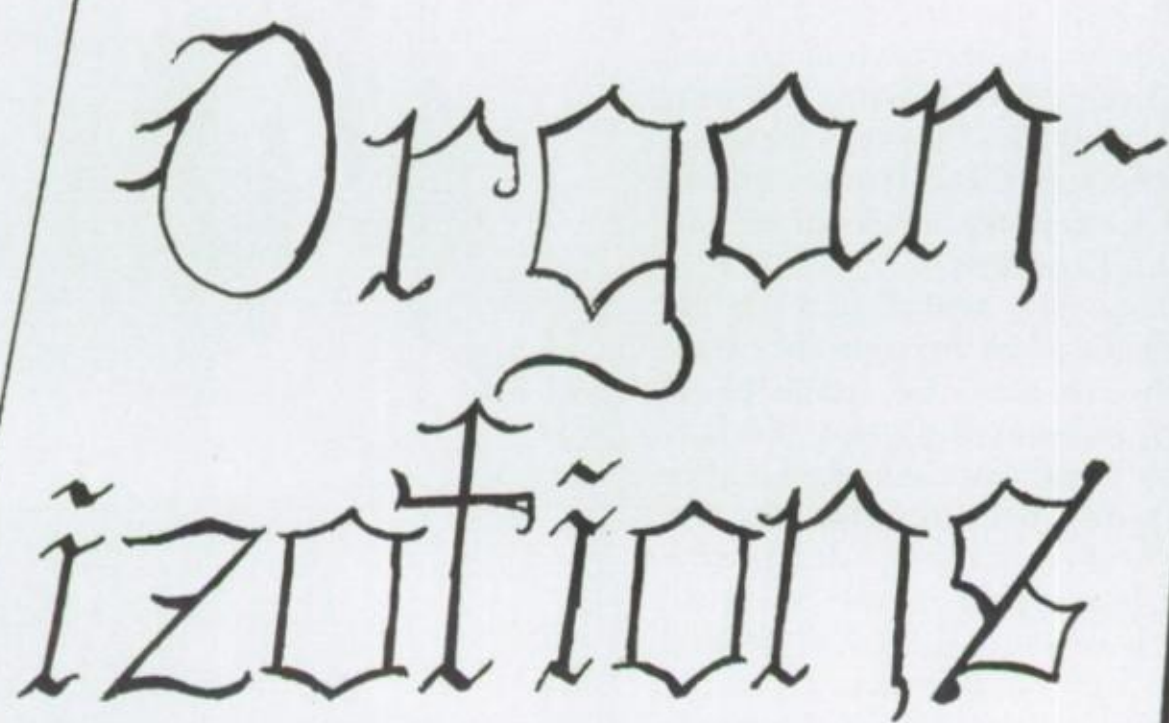 Organ-
izations